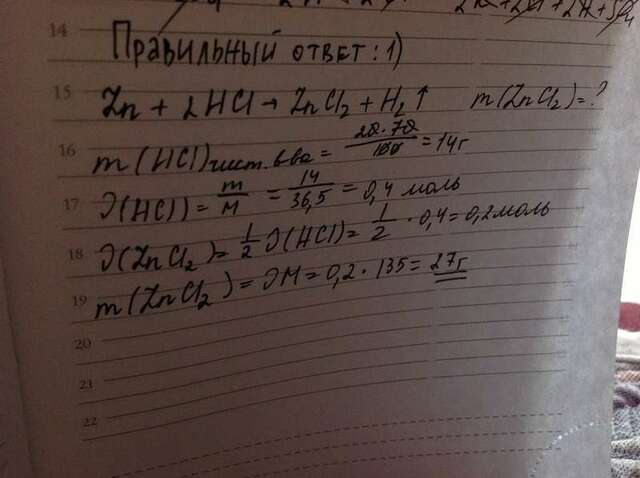 14
Правильный ответ: 1)
15 Zn + 2HCl → ZnCl₂ + H₂↑ m(ZnCl₂) = ?
16 m(HCl)чист. в-ва = 20·70/100 = 14г
17 ϑ(HCl) = m/M = 14/36,5 = 0,4 моль
18 ϑ(ZnCl₂) = 1/2 ϑ(HCl) = 1/2 · 0,4 = 0,2 моль
19 m(ZnCl₂) = ϑM = 0,2 · 135 = 27г
20
21
22